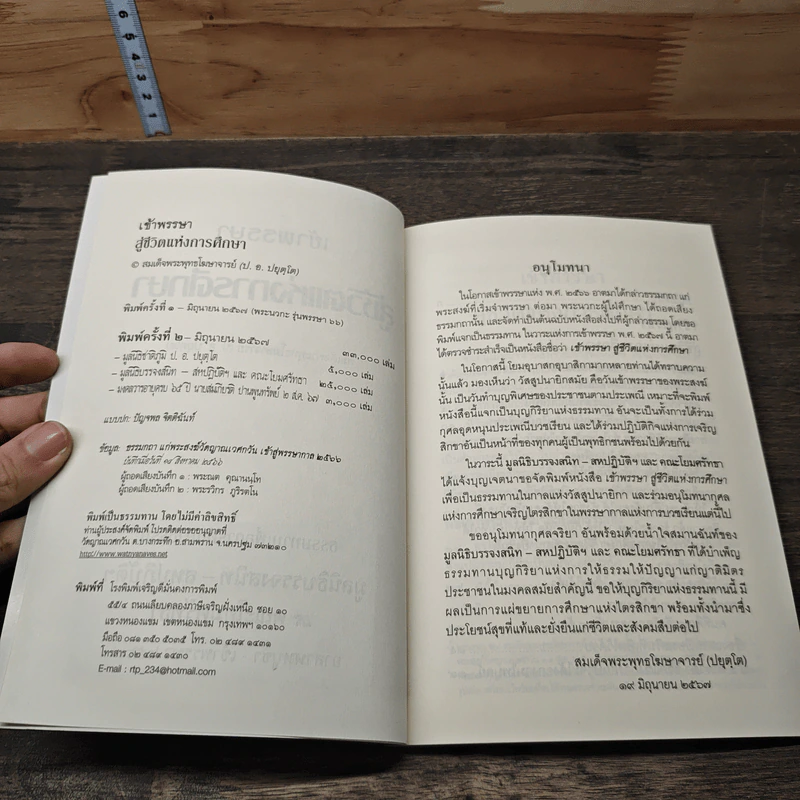 เข้าพรรษา
สู่ชีวิตแห่งการศึกษา
© สมเด็จพระพุทธโฆษาจารย์ (ป. อ. ปยุตฺโต)
พิมพ์ครั้งที่ ๑ – มิถุนายน ๒๕๖๗ (พระนวกะ รุ่นพรรษา ๖๖)
พิมพ์ครั้งที่ ๒ – มิถุนายน ๒๕๖๗ ๓๓,๐๐๐ เล่ม
– มูลนิธิชาติภูมิ ป. อ. ปยุตฺโต ๕,๐๐๐ เล่ม
– มูลนิธิบรรจงสนิท – สหปฏิบัติฯ และ คณะโยมศรัทธา ๒๕,๐๐๐ เล่ม
– มงคลวารอายุครบ ๖๕ ปี นายสมเกียรติ ปานพูนทรัพย์ ๒ ส.ค. ๖๗ ๓,๐๐๐ เล่ม
แบบปก: ปัญจพล จิตติฉันท์
ข้อมูล: ธรรมกถา แก่พระสงฆ์วัดญาณเวศกวัน เข้าสู่พรรษากาล ๒๕๖๖
ผู้ถอดเสียงบันทึก ๑ : พระณต คุณานนฺโท
ผู้ถอดเสียงบันทึก ๒ : พระรวิกร ภูริรตโน
พิมพ์เป็นธรรมทาน โดยไม่มีค่าลิขสิทธิ์
ท่านผู้ประสงค์จัดพิมพ์ โปรดติดต่อขออนุญาตที่
วัดญาณเวศกวัน ต.บางกระทึก อ.สามพราน จ.นครปฐม ๗๓๒๑๐
http://www.watnyanaves.net
พิมพ์ที่ โรงพิมพ์เจริญดีมั่นคงการพิมพ์
๕๕/๔ ถนนเลียบคลองภาษีเจริญฝั่งเหนือ ซอย ๑๐
แขวงหนองแขม เขตหนองแขม กรุงเทพฯ ๑๐๑๖๐
มือถือ ๐๘๑ ๓๕๐ ๕๐๓๕ โทร. ๐๒ ๔๘๙ ๑๔๓๑
โทรสาร ๐๒ ๔๘๙ ๑๔๓๐
E-mail : rtp_234@hotmail.com
อนุโมทนา
ในโอกาสเข้าพรรษาแห่ง พ.ศ. ๒๕๖๖ อาตมาได้กล่าวธรรมกถา แก่
พระสงฆ์ที่เริ่มจำพรรษา ต่อมา พระนวกะผู้ใฝ่ศึกษา ได้ถอดเสียง
ธรรมกถานั้น และจัดทำเป็นต้นฉบับหนังสือส่งไปที่ผู้กล่าวธรรม โดยขอ
พิมพ์แจกเป็นธรรมทาน ในวาระแห่งการเข้าพรรษา พ.ศ. ๒๕๖๗ นี้ อาตมา
ได้ตรวจชำระสำเร็จเป็นหนังสือชื่อว่า เข้าพรรษา สู่ชีวิตแห่งการศึกษา
ในโอกาสนี้ โยมอุบาสกอุบาสิกามากหลายท่านได้ทราบความ
นั้นแล้ว มองเห็นว่า วัสสูปนายิกสมัย คือวันเข้าพรรษาของพระสงฆ์
นั้น เป็นวันทำบุญพิเศษของประชาชนตามประเพณี เหมาะที่จะพิมพ์
หนังสือนี้แจกเป็นบุญกิริยาแห่งธรรมทาน อันจะเป็นทั้งการได้ร่วม
กุศลอุดหนุนประเพณีบวชเรียน และได้ร่วมปฏิบัติกิจแห่งการเจริญ
สิกขาอันเป็นหน้าที่ของทุกคนผู้เป็นพุทธิกชนพร้อมไปด้วยกัน
ในวาระนี้ มูลนิธิบรรจงสนิท – สหปฏิบัติฯ และ คณะโยมศรัทธา
ได้แจ้งบุญเจตนาขอจัดพิมพ์หนังสือ เข้าพรรษา สู่ชีวิตแห่งการศึกษา
เพื่อเป็นธรรมทานในกาลแห่งวัสสูปนายิกา และร่วมอนุโมทนากุศล
แห่งการศึกษาเจริญไตรสิกขาในพรรษากาลแห่งการบวชเรียนแต่นี้ไป
ขออนุโมทนากุศลจริยา อันพร้อมด้วยน้ำใจสมานฉันท์ของ
มูลนิธิบรรจงสนิท – สหปฏิบัติฯ และ คณะโยมศรัทธา ที่ได้บำเพ็ญ
ธรรมทานบุญกิริยาแห่งการให้ธรรมให้ปัญญาแก่ญาติมิตร
ประชาชนในมงคลสมัยสำคัญนี้ ขอให้บุญกิริยาแห่งธรรมทานนี้ มี
ผลเป็นการแผ่ขยายการศึกษาแห่งไตรสิกขา พร้อมทั้งนำมาซึ่ง
ประโยชน์สุขที่แท้และยั่งยืนแก่ชีวิตและสังคมสืบต่อไป
สมเด็จพระพุทธโฆษาจารย์ (ปยุตฺโต)
๑๙ มิถุนายน ๒๕๖๗